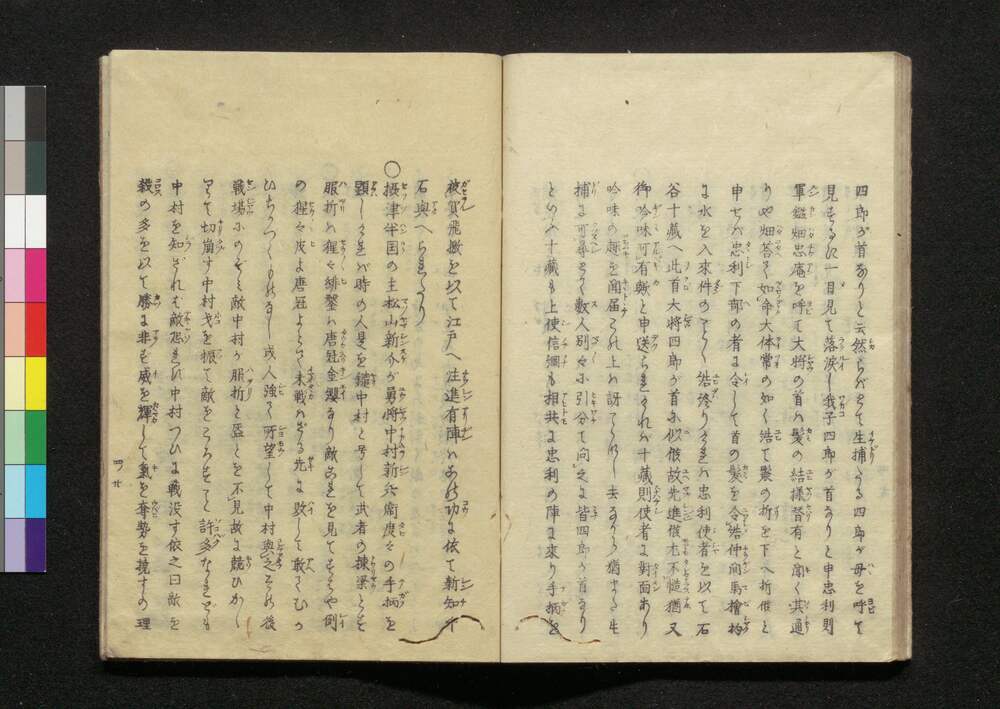 四郎が首なりと云然らバとて生捕たる四郎が母を呼て
見するに一目見て落涙し我子四郎が首なりと申忠利則
軍鑑畑忠庵を呼て大将の首ハ髪の結様習有と聞く其通
りや畑荅て如命大体常の如く結て髪の折を下へ折候と
申せバ忠利下部の者に令して首の髪を令結仲間馬檜杓
に水を入来件のごとく結終りけれハ忠利使者を以て石
谷十蔵へ此首大将四郎が首に似候故先進候尤不慥猶又
御吟味可有歟と申送られけれバ十蔵則使者に對面あり
吟味の趣を聞届られ上ハ訝しく去ながら猶また生
捕に可尋とて数人別々に引分て問之に皆四郎が首なり
といふ十蔵も上使信綱も相共に忠利の陣に来り手柄を
被賞飛檄を以て江戸へ注進有陣佐左衛門功に依て新知千
石與へられたり
〇摂津半国の主松山新介が勇将中村新兵衛度々の手柄を
顕しければ時の人是を鑓中村と号して武者の棟梁とす
服折ハ猩々緋鍪ハ唐冠金纓なり敵これを見てすはや例
の猩々皮よ唐冠よとて未戦ハざる先に敗して敢てむか
ひちかづくものなし或人強て所望して中村與之その後
戦場にのぞミ敵中村が服折と盔とを不見故に競ひかゝ
りて切崩す中村戈を振て敵をころすこと許多なれども
中村を知ざれば敵恐れず中村つひに戦没す依之曰敵を
殺の多を以て勝に非ず威を輝して氣を奪勢を撓すの理
四ノ廿